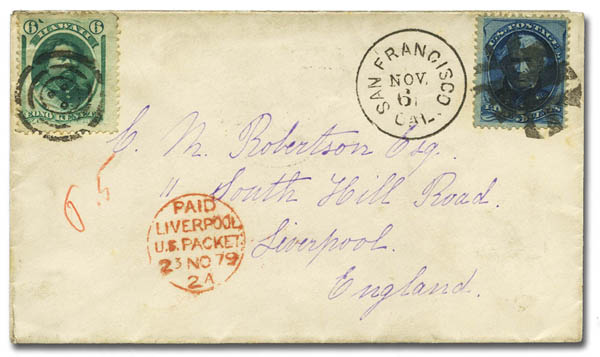 6 HAWAII 6
U.S. POSTAGE
SAN FRANCISCO
NOV.
6
CAL.
C. M. Robertson Esq.
11 South Hill Road.
Liverpool.
England.
6.5
PAID
LIVERPOOL
U.S. PACKET
23 NO 79
2A